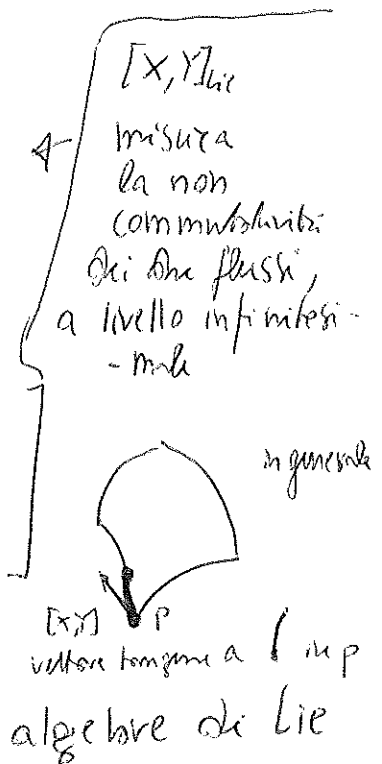 [X,Y]Lie
misura
la non
commutatività
dei due flussi,
a livello infinitesi-
-male
in generale
[X,Y] P
vettore tangente a ( in p
algebre di Lie